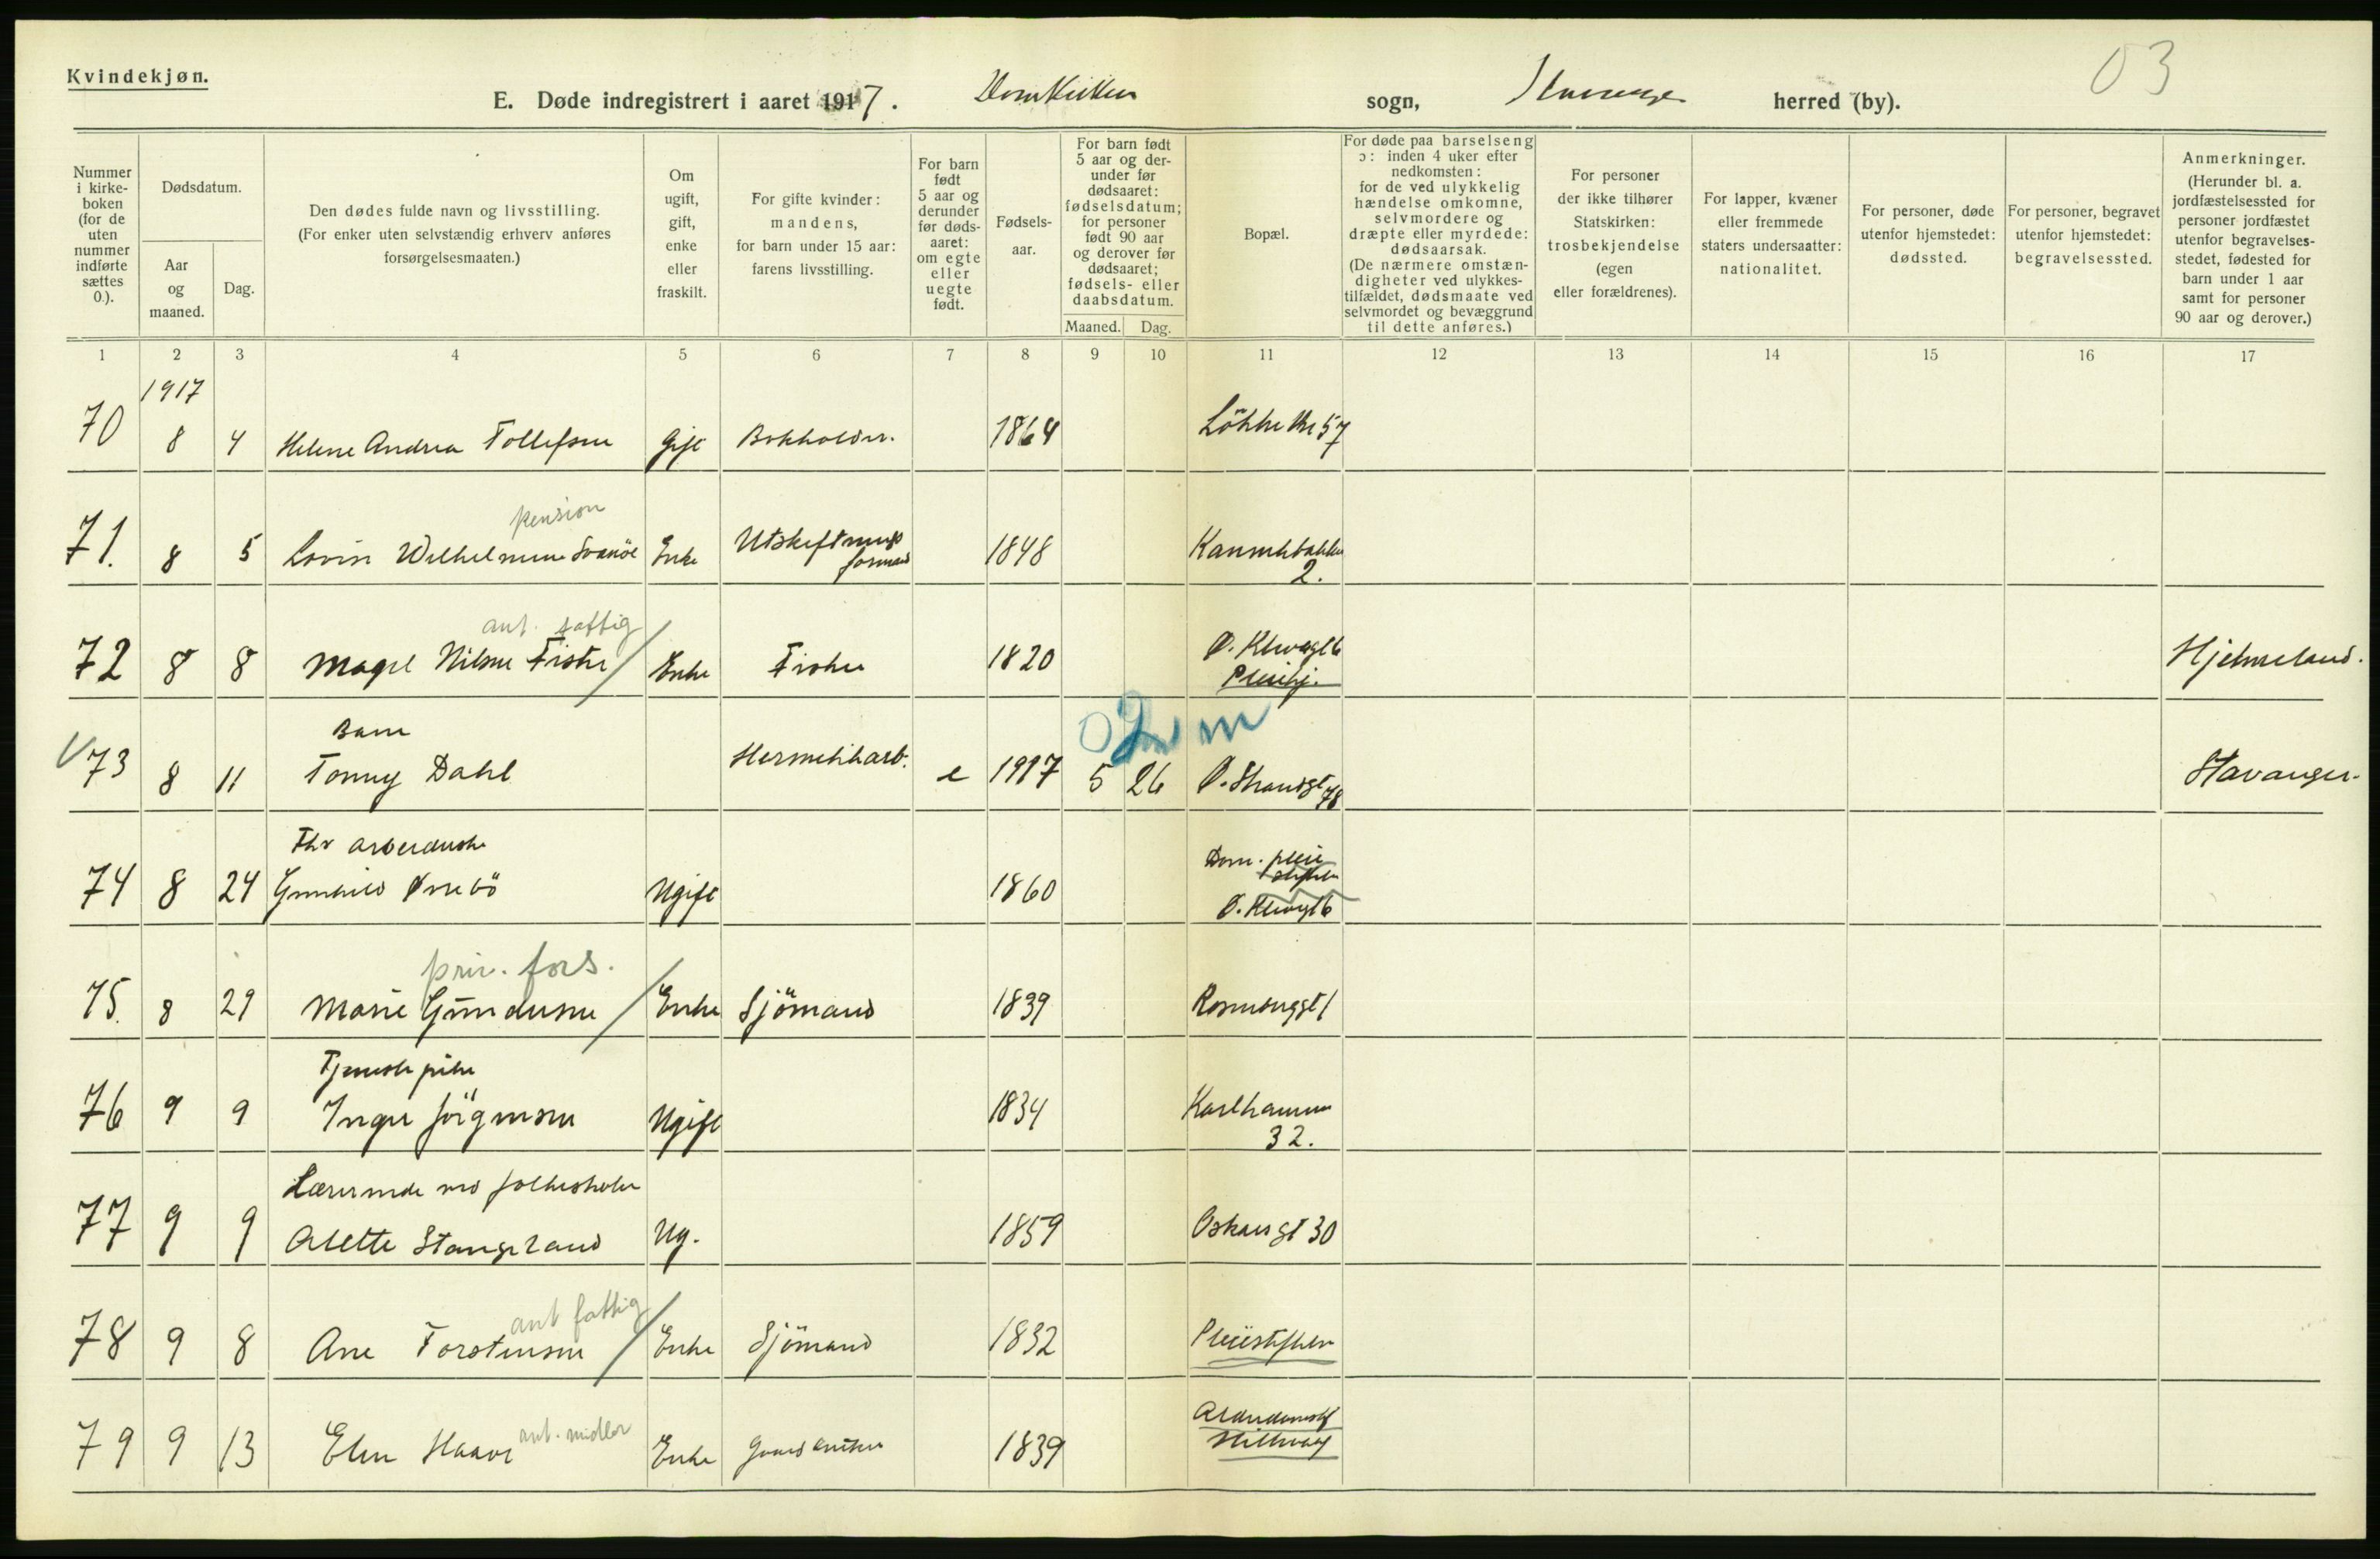 Kvindekjøn.
03
E. Døde indregistrert i aaret 1917. Domkirken sogn, Stavanger herred (by).
Nummer i kirkeboken (for de uten nummer indførte sættes 0.).
Dødsdatum.
Aar og maaned.
Dag.
Den dødes fulde navn og livsstilling. (For enker uten selvstændig erhverv anføres forsørgelsesmaaten.)
Om ugift, gift, enke eller fraskilt.
For gifte kvinder: mandens, for barn under 15 aar: farens livsstilling.
For barn født 5 aar og derunder før dødsaaret: om egte eller uegte født.
Fødselsaar.
For barn født 5 aar og derunder før dødsaaret: fødselsdatum; for personer født 90 aar og derover før dødsaaret; fødsels- eller daabsdatum.
Maaned. Dag.
Bopæl.
For døde paa barselseng ɔ: inden 4 uker efter nedkomsten: for de ved ulykkelig hændelse omkomne, selvmordere og dræpte eller myrdede: dødsaarsak. (De nærmere omstændigheter ved ulykkestilfældet, dødsmaate ved selvmordet og bevæggrund til dette anføres.)
For personer der ikke tilhører Statskirken: trosbekjendelse (egen eller forældrenes).
For lapper, kvæner eller fremmede staters undersaatter: nationalitet.
For personer, døde utenfor hjemstedet: dødssted.
For personer, begravet utenfor hjemstedet: begravelsessted.
Anmerkninger. (Herunder bl. a. jordfæstelsessted for personer jordfæstet utenfor begravelsesstedet, fødested for barn under 1 aar samt for personer 90 aar og derover.)
1 2 3 4 5 6 7 8 9 10 11 12 13 14 15 16 17
1917
70 8 4 Helene Andrea Tollefsen Gift Bokholder. 1864 Løkke 57
pension
71. 8 5 Lovise Wilhelmine Svanöe Enke Utskiftnings formand 1848 Kannikbakken 2.
ant. fattig
72 8 8 Magel Nilsen Fister Enke Fisker 1820 Ø. Klevegt 6 Pleiehj. Hjelmeland.
Barn
73 8 11 Tonny Dahl Hermetikarb. e 1917 5 26 Ø. Strandgt 78 Stavanger.
0 2 m
Fhv arbeiderske
74 8 24 Gunhild Ørrebö Ugift 1860 Dom. pleie stiftelse Ø. Klevegt 6
priv. fors.
75. 8 29 Marie Gundersen Enke Sjömand 1839 Rosenberggt 1
Tjenestepike
76 9 9 Inger Jörgensen Ugift 1834 Karlhammer 32.
Lærerinde ved folkeskolen
77 9 9 Alette Stangeland Ug. 1859 Oskarsgt 30
ant fattig
78 9 8 Ane Torstensen Enke Sjömand 1832 Pleiestiftelsen
ant. midler
79 9 13 Elen Haave Enke Gaardbruker 1839 Alderdomsh Stillwaag